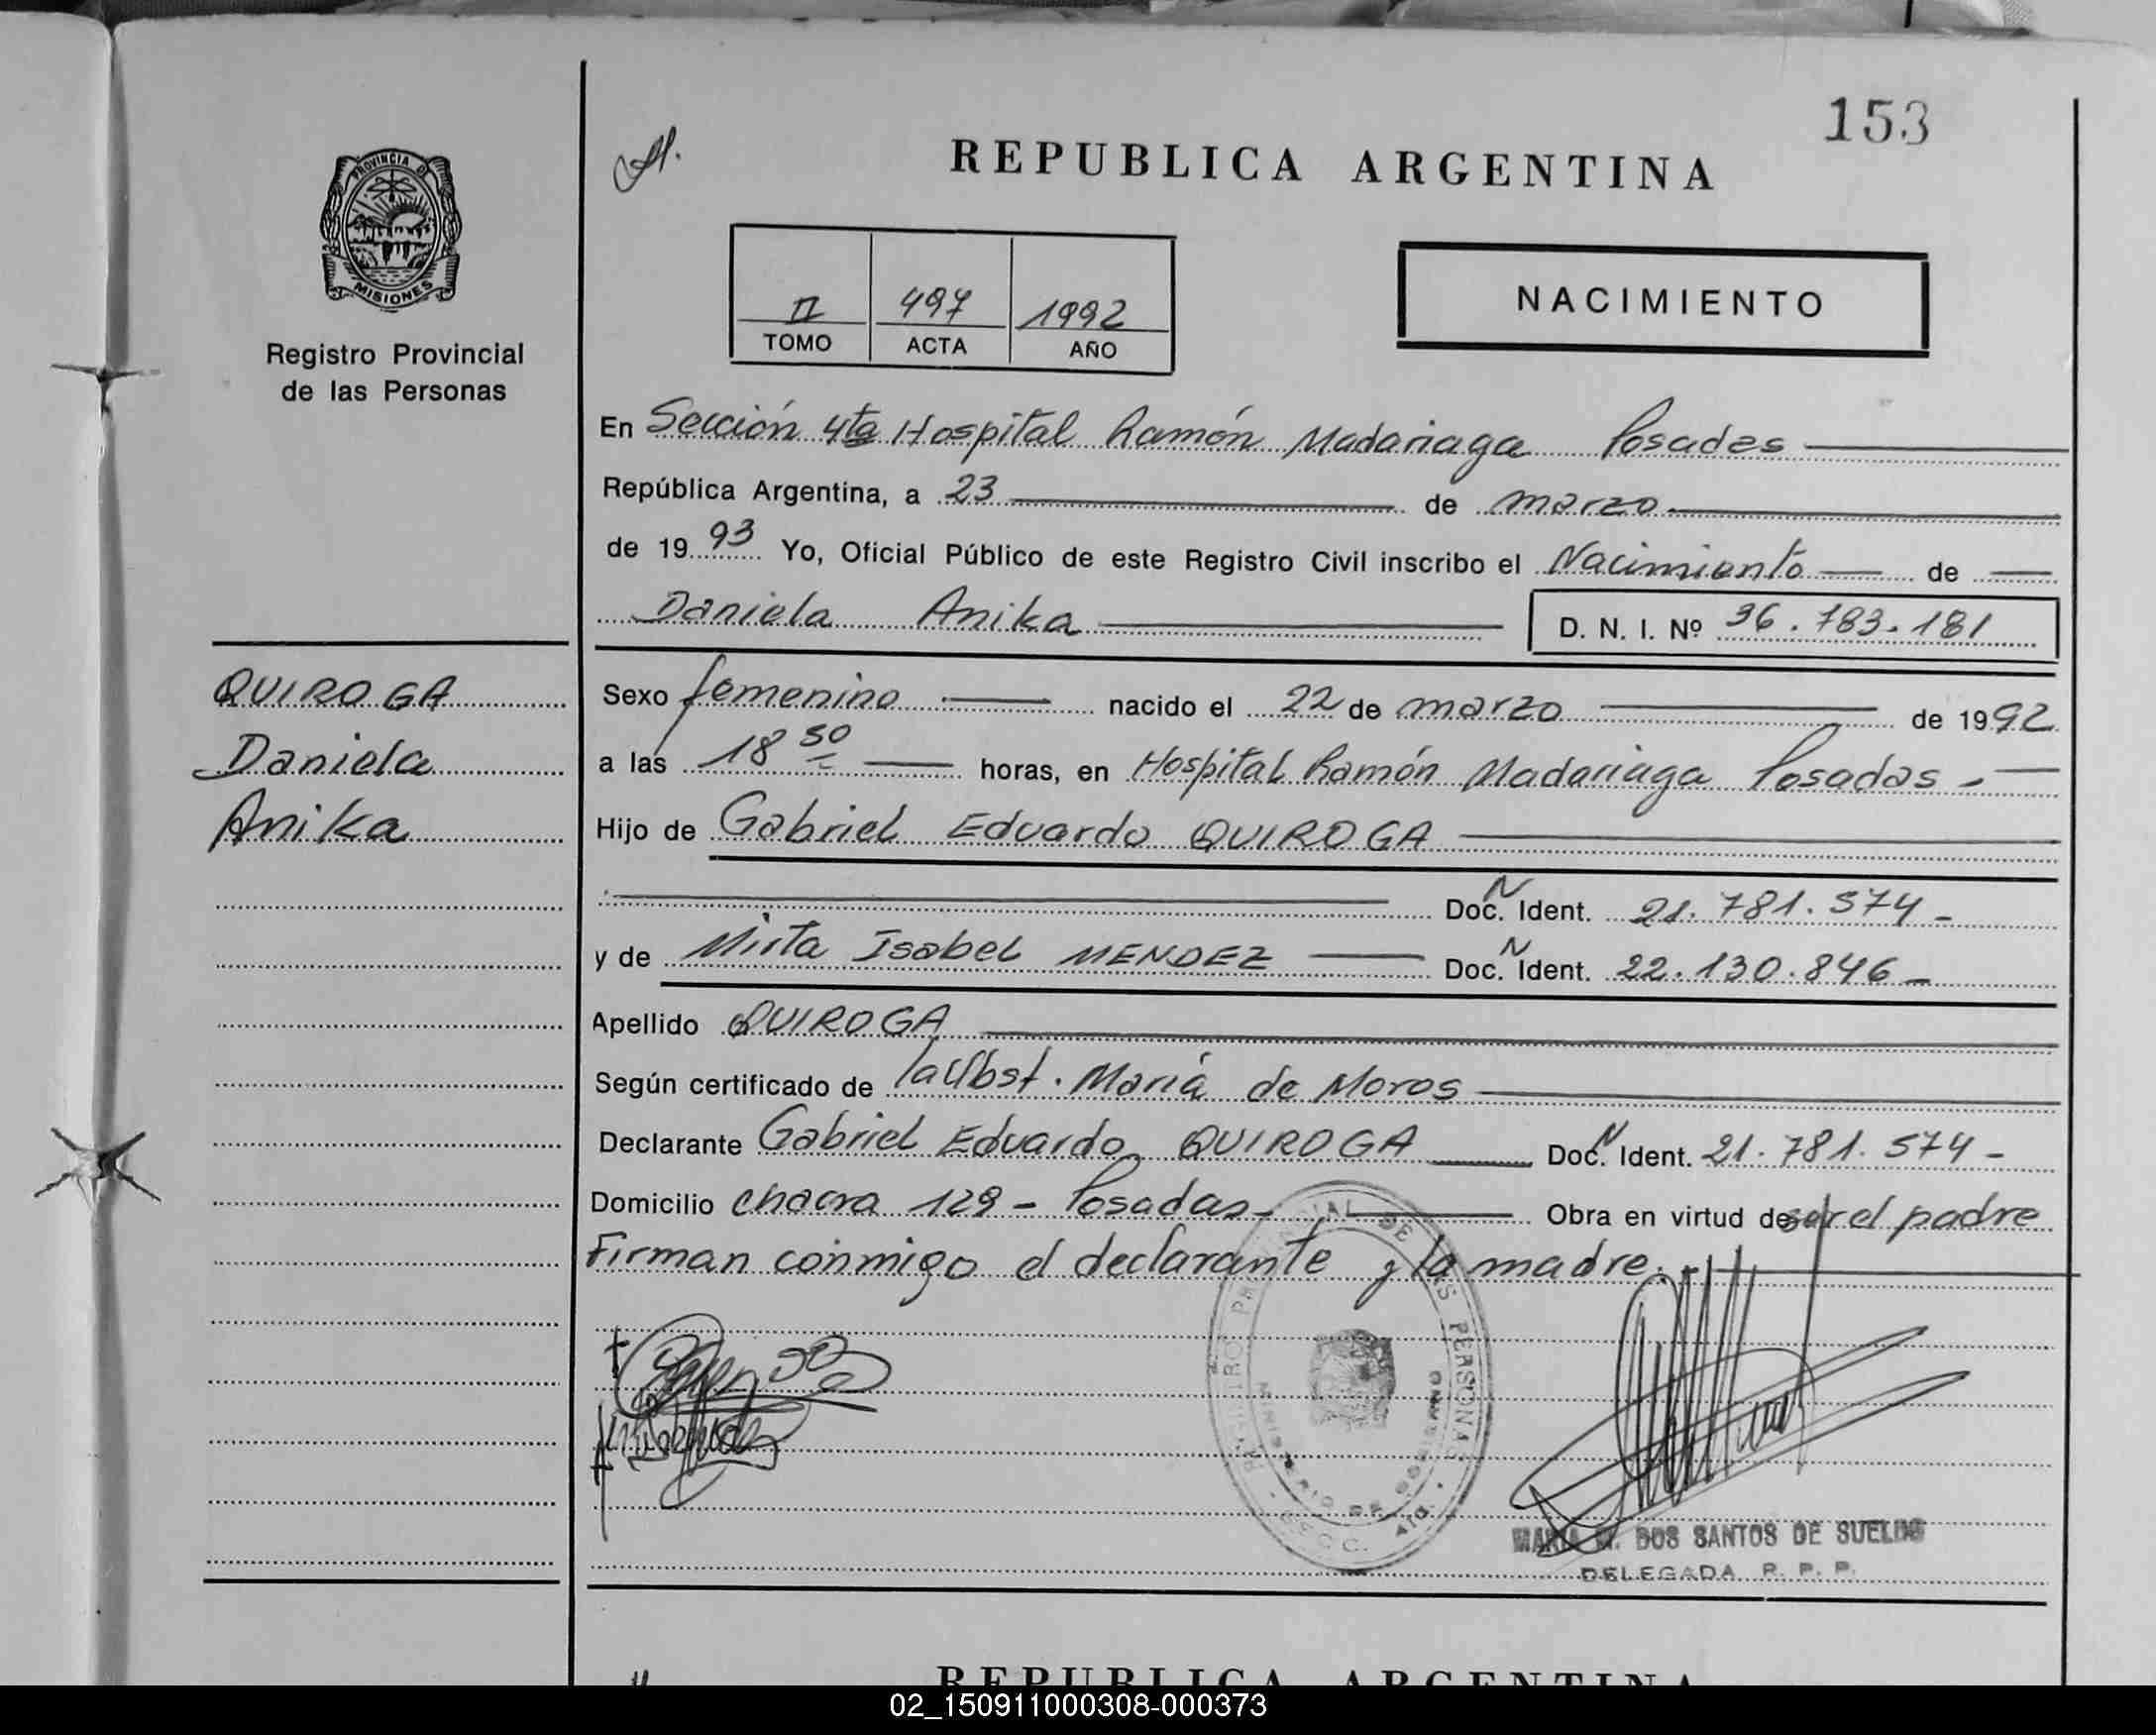 153
REPUBLICA ARGENTINA
PROVINCIA DE
MISIONES
Registro Provincial
de las Personas
II 497 1992
TOMO ACTA AÑO
NACIMIENTO
En Sección 4ta Hospital Ramón Madariaga Posadas
República Argentina, a 23 de marzo
de 1993 Yo, Oficial Público de este Registro Civil inscribo el Nacimiento de
Daniela Anika D. N. I. Nº 36.783.181
QUIROGA
Daniela
Anika
Sexo femenino nacido el 22 de marzo de 1992
a las 18 50 horas, en Hospital Ramón Madariaga Posadas.-
Hijo de Gabriel Eduardo QUIROGA
Doc. N Ident. 21.781.574-
y de Mirta Isabel MENDEZ Doc. N Ident. 22.130.846-
Apellido QUIROGA
Según certificado de la Obst. María de Moros
Declarante Gabriel Eduardo QUIROGA Doc. N Ident. 21.781.574-
Domicilio chacra 129 - Posadas- Obra en virtud de ser el padre
Firman conmigo el declarante y la madre.-
DE LAS PERSONAS
MINISTERIO DE GOBIERNO
MARIA M. DOS SANTOS DE SUELDO
DELEGADA R. P. P.
REPUBLICA ARGENTINA
02_150911000308-000373